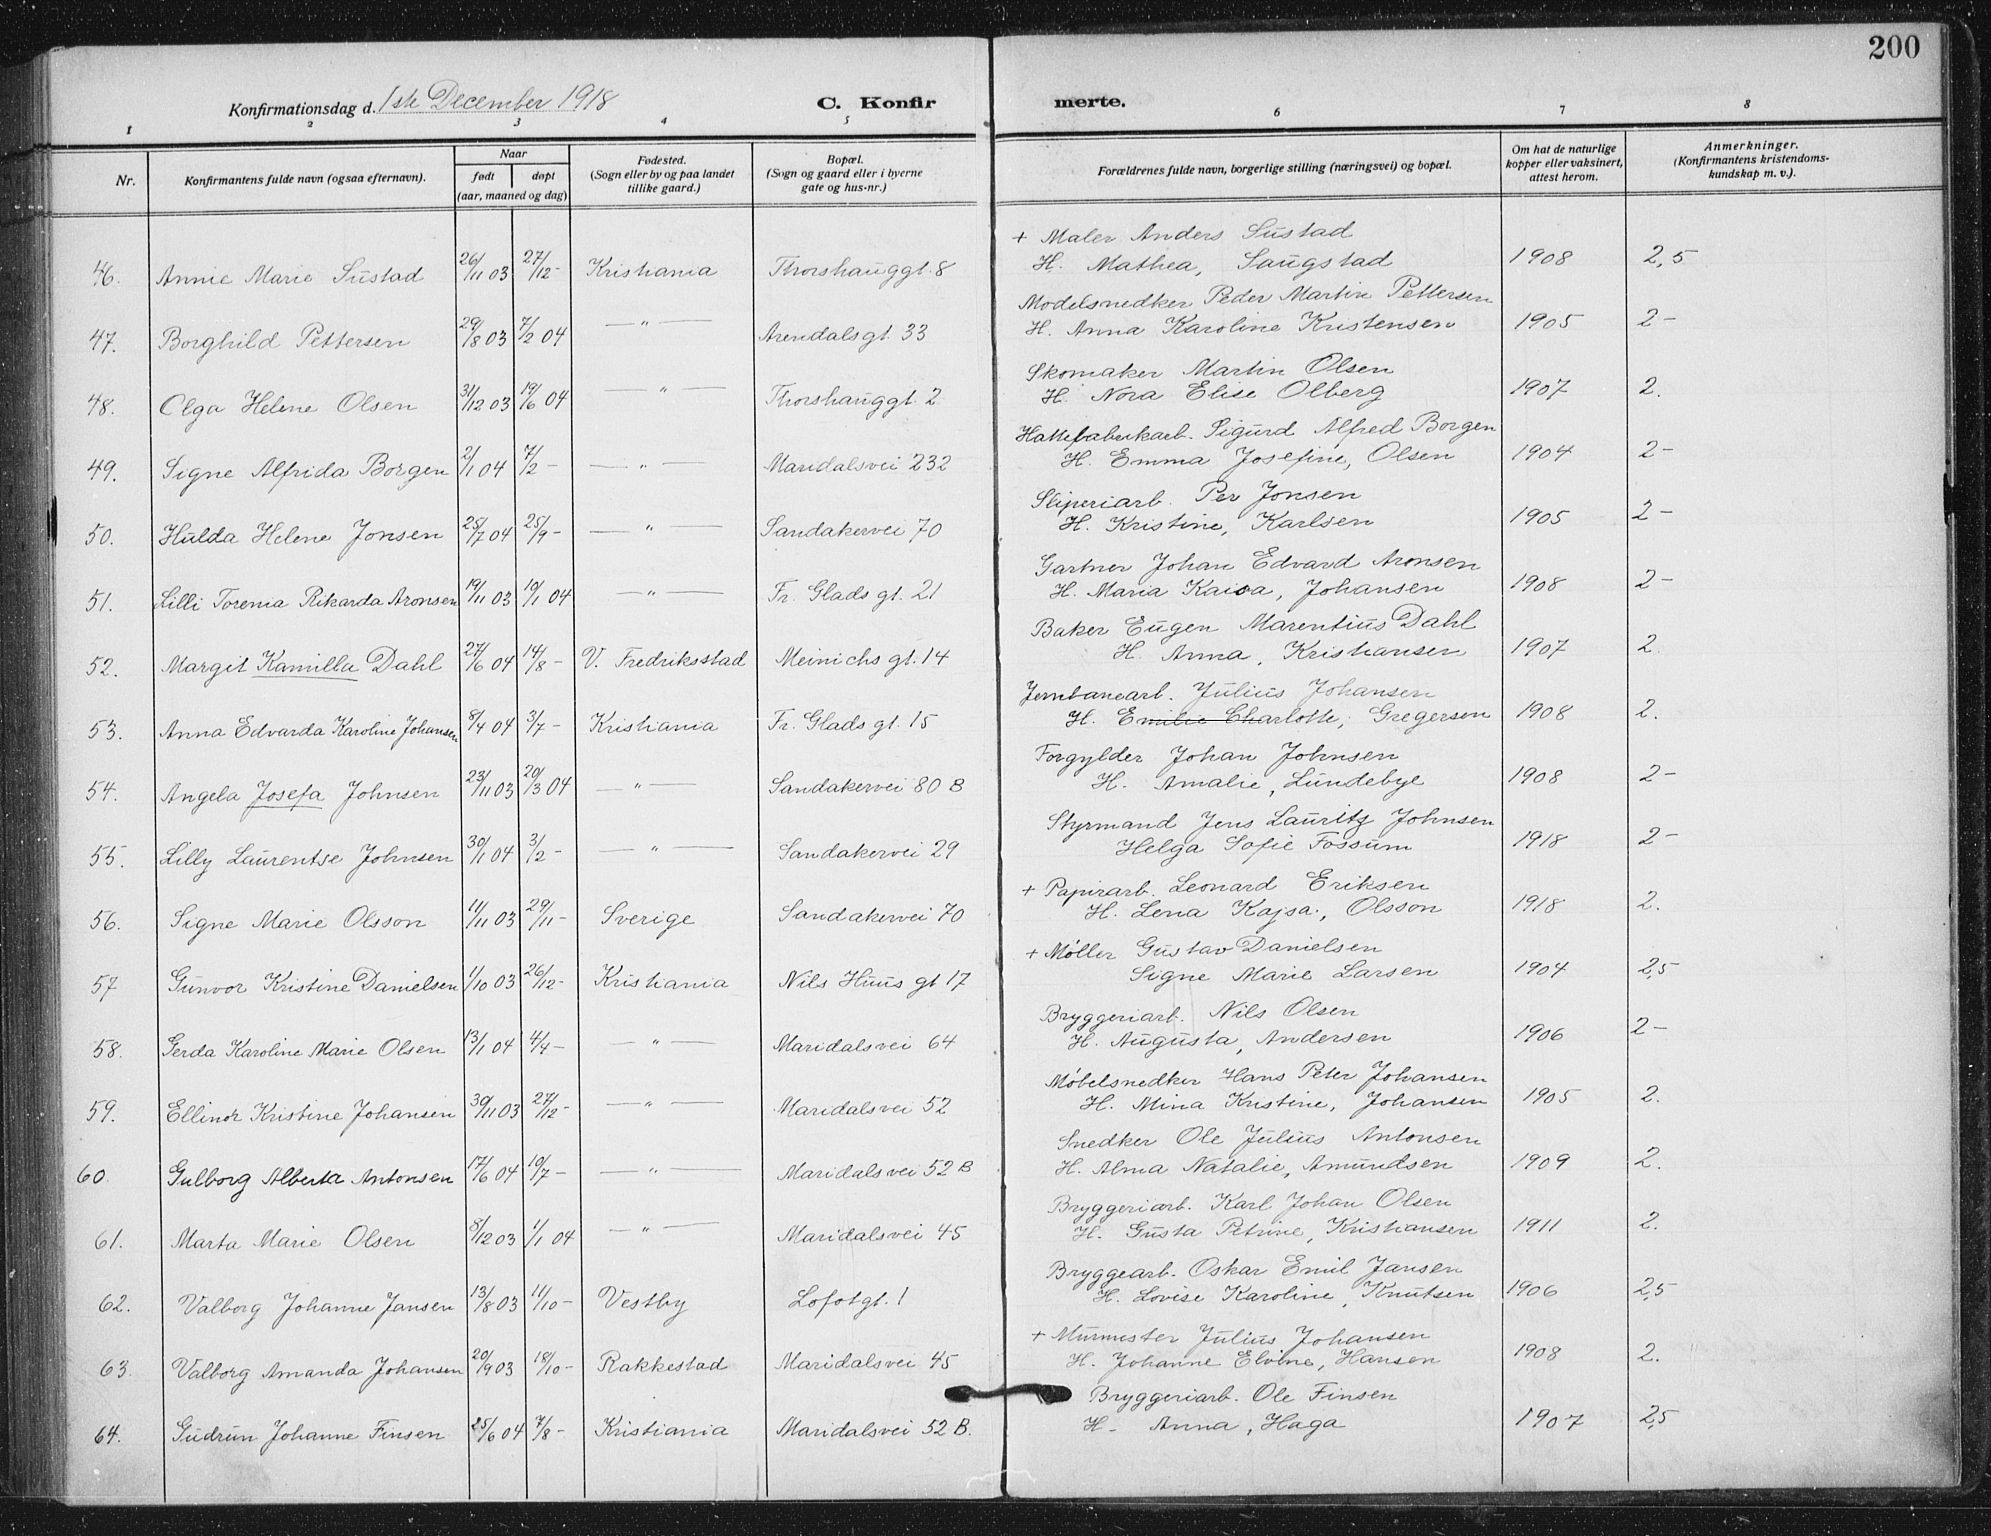 200
Konfirmationsdag d. 1ste December 1918 C. Konfirmerte.
1 2 3 4 5 6 7 8
Nr. Konfirmantens fulde navn (ogsaa efternavn). Naar født døpt (aar, maaned og dag) Fødested. (Sogn eller by og paa landet tillike gaard.) Bopæl. (Sogn og gaard eller i byerne gate og hus-nr.) Forældrenes fulde navn, borgerlige stilling (næringsvei) og bopæl. Om hat de naturlige kopper eller vaksinert, attest herom. Anmerkninger. (Konfirmantens kristendoms-kundskap m. v.).
+ Maler Anders Sustad
46. Annie Marie Sustad 26/11 03 27/12 - Kristiania Thorshauggt. 8 H. Mathea, Saugstad 1908 2,5
Modelsnedker Peder Martin Pettersen
47. Borghild Pettersen 29/8 03 7/2 04 — " — Arendalsgt. 33 H. Anna Karoline Kristensen 1905 2-
Skomaker Martin Olsen
48. Olga Helene Olsen 31/12 03 19/6 04 — " — Thorshauggt. 2 H. Nora Elise Olberg 1907 2.
Hattefabrikarb. Sigurd Alfred Borgen
49. Signe Alfrida Borgen 2/1 04 7/2 - — " — Maridalsvei 232 H. Emma Josefine, Olsen 1904 2-
Sliperiarb. Per Jonsen
50. Hulda Helene Jonsen 25/7 04 25/9 - — " — Sandakervei 70 H. Kristine, Karlsen 1905 2-
Gartner Johan Edvard Aronsen
51. Lilli Torenia Rikarda Aronsen 19/11 03 10/1 04 — " — Fr. Glads gt. 21 H. Maria Kaisa, Johansen 1908 2-
Baker Eugen Marentius Dahl
52. Margit Kamilla Dahl 27/6 04 14/8 - V. Fredriksstad Meinichs gt. 14 H. Anna, Kristiansen 1907 2.
Jernbanearb. Julius Johansen
53. Anna Edvarda Karoline Johansen 8/4 04 3/7 - Kristiania Fr. Glads gt. 15 H. Emilie Charlotte, Gregersen 1908 2.
Forgylder Johan Johnsen
54. Angela Josefa Johnsen 23/11 03 20/3 04 — " — Sandakervei 80 B H. Amalie, Lundebye 1908 2-
Styrmand Jens Lauritz Johnsen
55. Lilly Laurentse Johnsen 30/1 04 3/2 - — " — Sandakervei 29 Helga Sofie Fossum 1918 2-
+ Papirarb. Leonard Eriksen
56. Signe Marie Olsson 11/11 03 29/11 - Sverige Sandakervei 70 H. Lena Kajsa, Olsson 1918 2.
+ Møller Gustav Danielsen
57 Gunvor Kristine Danielsen 1/10 03 26/12 - Kristiania Nils Huus gt 17 Signe Marie Larsen 1904 2,5
Bryggeriarb. Nils Olsen
58. Gerda Karoline Marie Olsen 13/1 04 4/4 - — " — Maridalsvei 64 H. Augusta, Andersen 1906 2-
Møbelsnedker Hans Peter Johansen
59. Ellinor Kristine Johansen 30/11 03 27/12 - — " — Maridalsvei 52 H. Mina Kristine, Johansen 1905 2.
Snedker Ole Julius Antonsen
60. Gulborg Alberta Antonsen 17/6 04 10/7 - — " — Maridalsvei 52 B H. Alma Natalie, Amundsen 1909 2.
Bryggeriarb. Karl Johan Olsen
61. Marta Marie Olsen 8/12 03 1/1 04 — " — Maridalsvei 45 H. Gusta Petrine, Kristiansen 1911 2.
Bryggearb. Oskar Emil Jansen
62. Valborg Johanne Jansen 13/8 03 11/10 - Vestby Lofotgt. 1 H. Lovise Karoline, Knutsen 1906 2,5
+ Murmester Julius Johansen
63. Valborg Amanda Johansen 20/9 03 18/10 - Rakkestad Maridalsvei 45 H. Johanne Elvine, Hansen 1908 2.
Bryggeriarb. Ole Finsen
64. Gudrun Johanne Finsen 25/6 04 7/8 - Kristiania Maridalsvei 52 B. H. Anna, Haga 1907 2,5